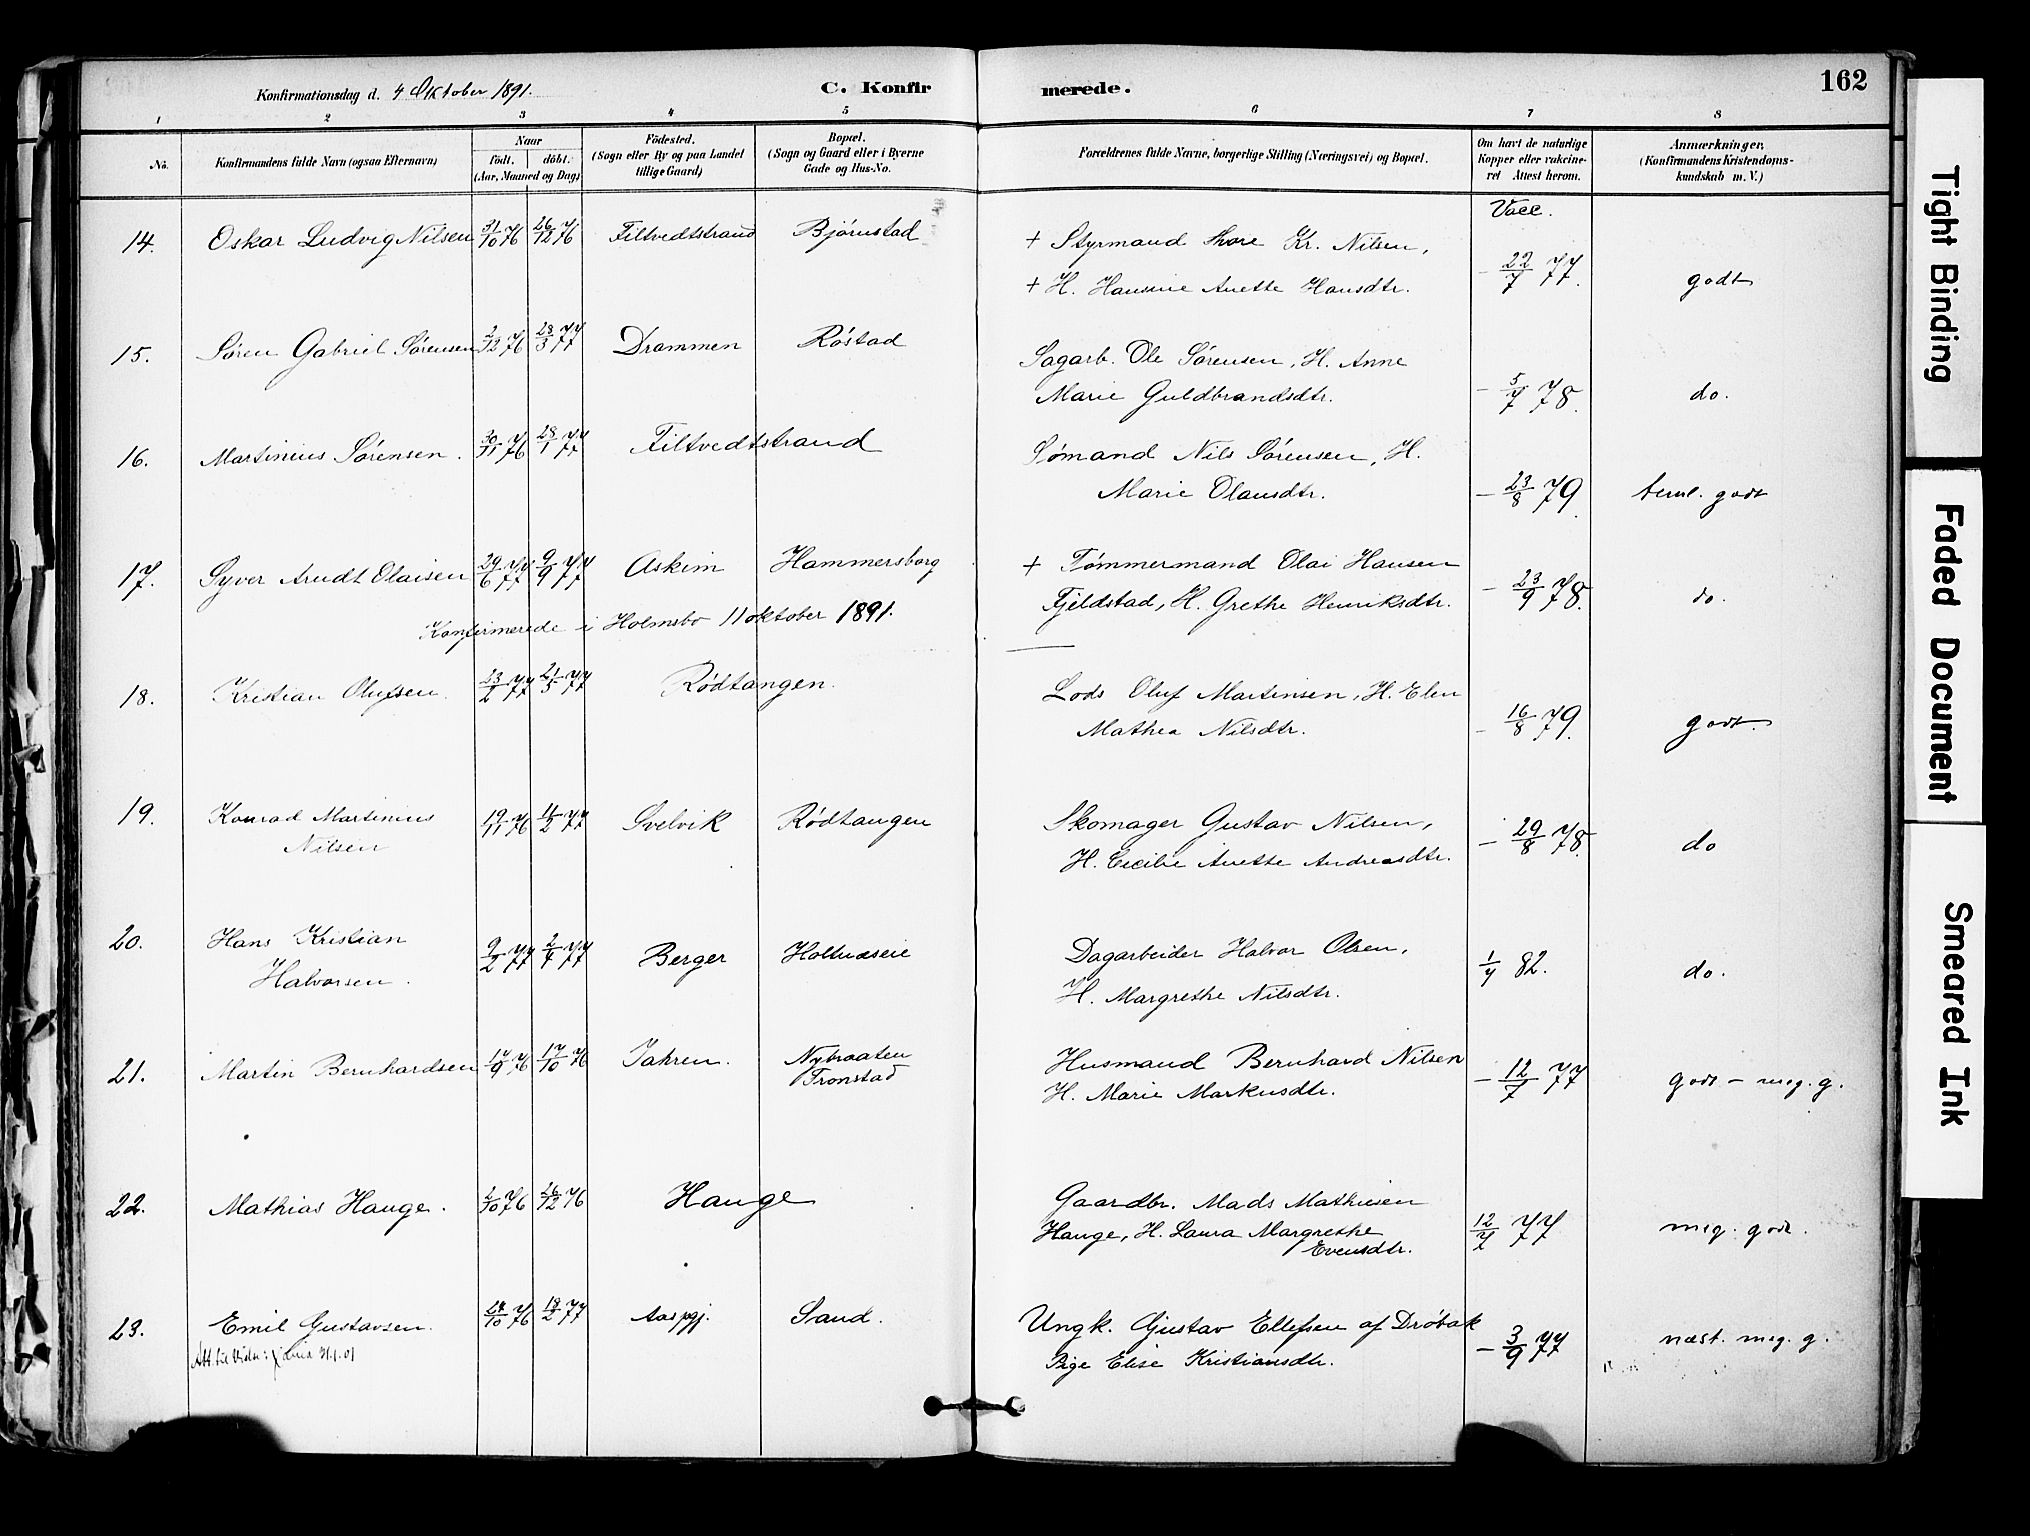 Konfirmationsdag d. 4 Oktober 1891.
C. Konfirmerede.
162
1 2 3 4 5 6 7 8
No.
Konfirmandens fulde Navn (ogsaa Efternavn)
Naar
födt. döbt.
(Aar, Maaned og Dag)
Födested.
(Sogn eller By og paa Landet
tillige Gaard)
Bopæl.
(Sogn og Gaard eller i Byerne
Gade og Hus-No.
Forældrenes fulde Navne, borgerlige Stilling (Næringsvei) og Bopæl.
Om havt de naturlige
Kopper eller vakcine-
ret Attest herom.
Anmærkninger,
(Konfirmandens Kristendoms-
kundskab m. V.)
Vacc.
14. Oskar Ludvig Nilsen 31/10 76 26/12 76 Filtvedtstrand Bjørnstad + Styrmand Thore Kr. Nilsen,
+ H. Hansine Anette Hansdtr. - 22/7 77. godt
15. Søren Gabriel Sørensen 2/12 76 28/3 77 Drammen Röstad
Sagarb. Ole Sørensen, H. Anne
Marie Guldbrandsdtr. - 5/7 78. do.
16. Martinius Sørensen. 30/11 76 28/1 77 Filtvedtstrand Sømand Nils Sørensen, H.
Marie Olausdtr. - 23/8 79. teml. godt
17. Syver Arndt Olaisen 29/6 77 9/9 77 Askim Hammersborg + Tømmermand Olai Hansen
Fjeldstad, H. Grethe Henriksdtr. - 23/9 78. do.
Konfirmerede i Holmsbo 11 oktober 1891.
18. Kristian Olufsen. 23/2 77 21/5 77 Rødtangen. Lods Oluf Martinsen, H. Elen
Mathea Nilsdtr. - 16/8 79. godt.
19. Konrad Martinius
Nilsen 19/11 76 11/2 77 Svelvik Rødtangen Skomager Gustav Nilsen,
H. Cicilie Anette Andreasdtr. - 29/8 78. do
20. Hans Kristian
Halvorsen. 9/2 77 2/4 77 Berger Holtnæseie Dagarbeider Halvor Olsen,
H. Margrethe Nilsdtr. 1/7 82. do.
21. Martin Bernhardsen 17/9 76 17/10 76 Jahren. Nybraaten
Tronstad Husmand Bernhard Nilsen
H. Marie Markusdtr. - 12/7 77 godt - meg. g.
22. Mathias Hauge. 2/10 76 26/12 76 Hauge Gaardbr. Mads Mathiesen
Hauge, H. Laura Margrethe
Evensdtr. 12/7 77 meg. godt.
23. Emil Gustavsen. 24/10 76 18/2 77 Aas pgj. Sand. Ungk. Gustav Ellefsen af Drøbak
Pige Elise Kristiansdtr. - 3/9 77 næst. meg. g.
Att. til 31.1.01
Tight Binding
Faded Document
Smeared Ink